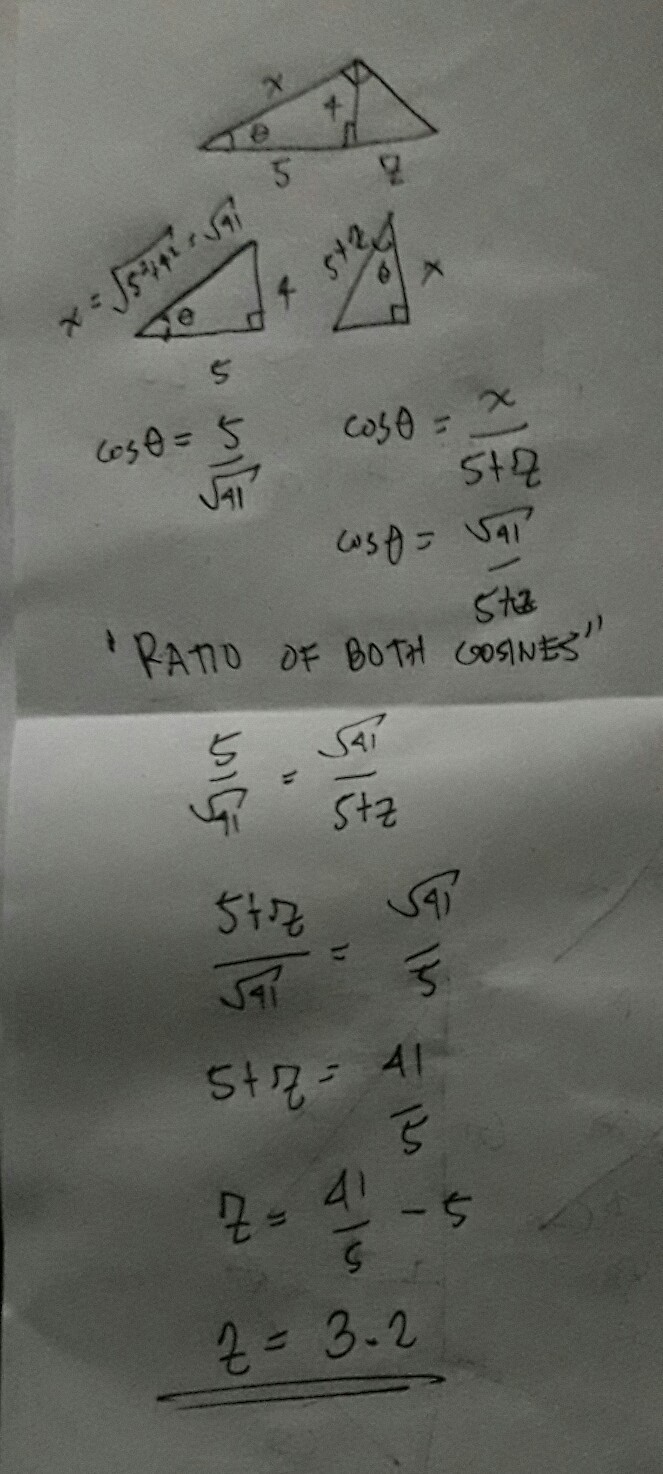 x
4
θ
5 z
x = √5²+4² = √41
θ
4
5
5+z
θ
x
cosθ = 5/√41
cosθ = x/5+z
cosθ = √41/5+z
"RATIO OF BOTH COSINES"
5/√41 = √41/5+z
5+z/√41 = √41/5
5+z = 41/5
z = 41/5 - 5
z = 3.2